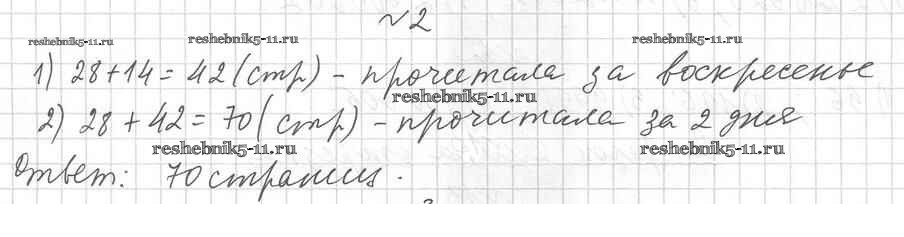 №2
reshebnik5-11.ru reshebnik5-11.ru reshebnik5-11.ru
1) 28+14=42(стр) - прочитала за воскресенье
reshebnik5-11.ru
2) 28+42=70(стр) - прочитала за 2 дня
reshebnik5-11.ru reshebnik5-11.ru
Ответ: 70 страниц.